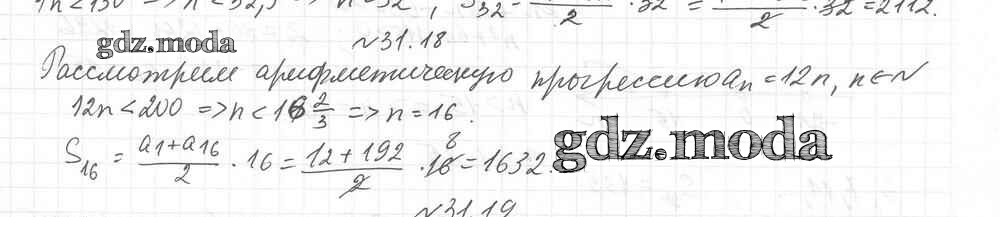 4n<130 => n<32,5 => n=32, S₃₂= ‾2 · 32 = ‾2 · 32 = 2112.
gdz.moda
№31.18
Рассмотрим арифметическую прогрессию aₙ = 12n, n∈N
12n<200 => n<16 2/3 => n=16.
S₁₆ = (a₁+a₁₆)/2 · 16 = (12+192)/2 · 16 8 = 1632.
gdz.moda
№31.19